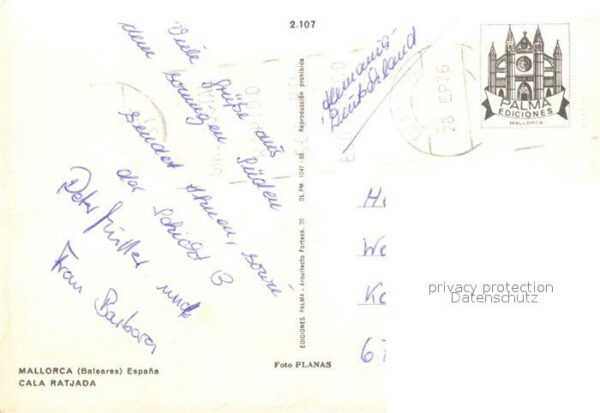 2.107
Viele Grüße aus
dem sonnigen Süden
sendet Ihnen, sowie
der Schicht B
Peter und
Frau Barbara
Alemania
Deutschland
28 SEP 76
PALMA
EDICIONES
MALLORCA
EDICIONES PALMA - Arquitecto Forteza, 70 DL.PM. 1047-65 Reproducción prohibida
H
W
K
67
privacy protection
Datenschutz
Foto PLANAS
MALLORCA (Baleares) España
CALA RATJADA